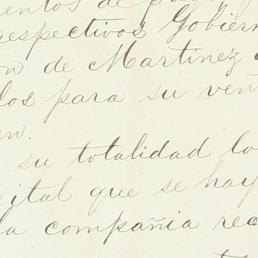 entos de
respectivos Gobier
on de Martinez
los para su ven
en.
su totalidad lo
ital que se hay
la compañia rec